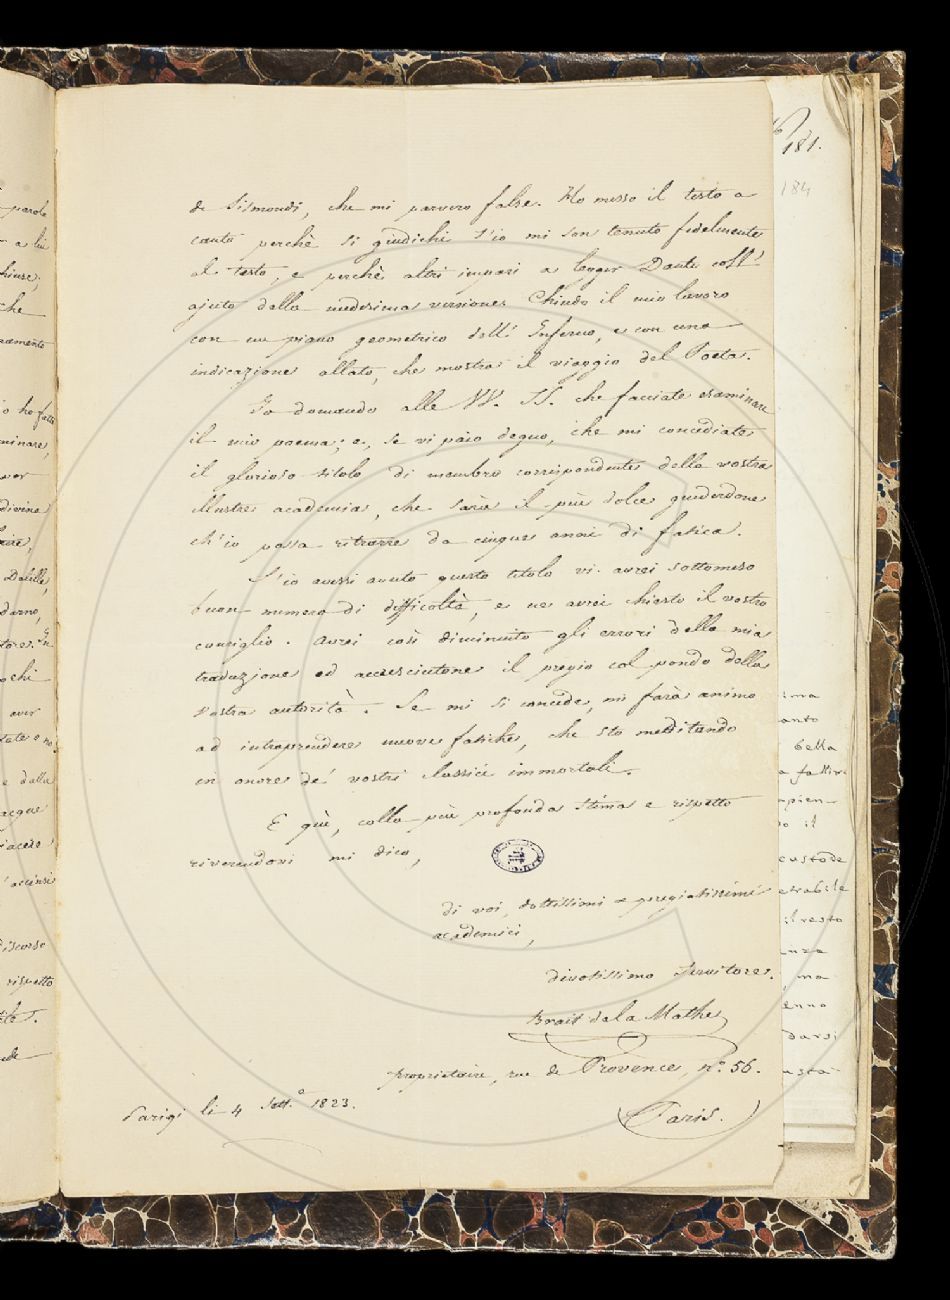 de Sismondi, che mi parvero false. Ho messo il testo a
canto perchè si giudichi s'io mi son tenuto fedelmente
al testo, e perchè altri impari a legger Dante coll'
ajuto della medesima versione. Chiudo il mio lavoro
con un piano geometrico dell' Inferno, e con una
indicazione allato, che mostra il viaggio del Poeta.
Io domando alle VV. SS. che facciate esaminare
il mio poema; e, se vi pajo degno, che mi concediate
il glorioso titolo di membro corrispondente della vostra
illustre academia, che sarà il più dolce guiderdone
ch'io possa ritrarre da cinque anni di fatica.
S'io avessi avuto questo titolo vi avrei sottomesso
buon numero di difficoltà, e ne avrei chiesto il vostro
consiglio. Avrei così diminuito gli errori della mia
traduzione ed accresciutone il pregio col pondo della
vostra autorità. Se mi si concede, mi farà animo
ad intraprendere nuove fatiche, che sto meditando
in onore de' vostri classici immortali.
E qui, colla più profonda stima e rispetto
riverendovi mi dico,
di voi, dottissimi e pregiatissimi
academici,
divotissimo Servitore.
Brait Delamathe
propriétaire, rue de Provence, n.º 56.
Parigi li 4 Sett.e 1823.
Paris.
181.
184
parole
a lui
che
divina
Dalille,
chi
aver
e dalla
discorso
rispetto
anto
bella
o il
custode
il resto